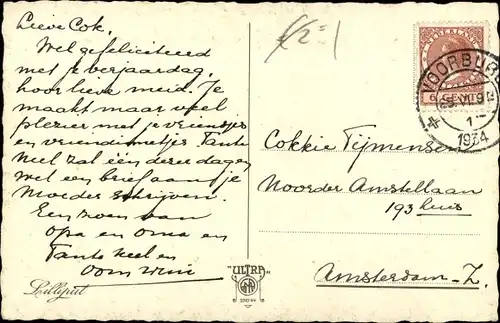 Lieve Cok.
Wel gefeliciteerd
met je verjaardag,
hoor lieve meid. Je
maakt maar veel
plezier met je vriendjes
en vriendinnetjes Tante
Neel zal één dezer dagen
wel een brief aan je
Moeder schrijven.
Een zoen van
opa en oma en
Tante Neel en
oom Wim
Lilliput
"ULTRA"
f/2=
NEDERLAND
VOORBURG
1934
Cokkie Tijmensen
Noorder Amstellaan
193 huis
Amsterdam-Z.